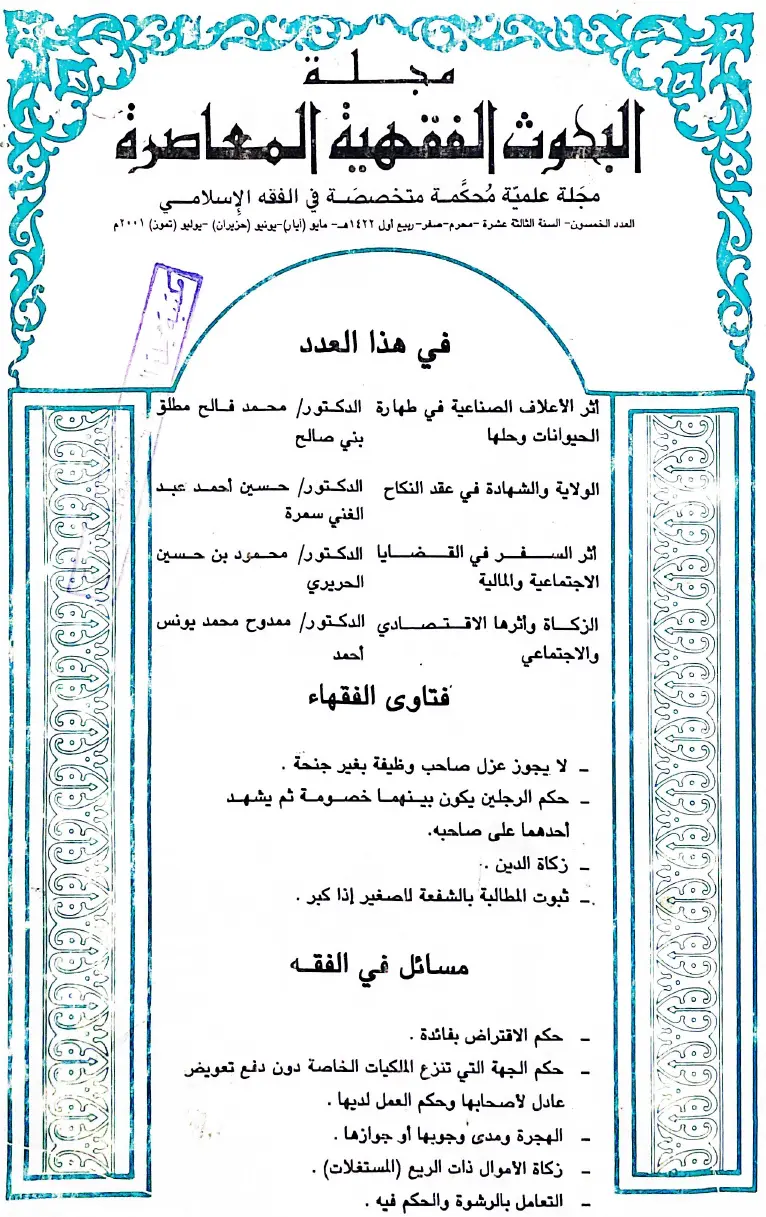 مجلة
البحوث الفقهية المعاصرة
مجَلة علميّة مُحكَّمة متخصصَة في الفقه الإسلامي
العدد الخمسون- السنة الثالثة عشرة -محرم-صفر-ربيع أول ١٤٢٢هـ- مايو (أيار)-يونيو (حزيران) -يوليو (تموز) ٢٠٠١م
مكتبة
في هذا العدد
أثر الأعلاف الصناعية في طهارة الدكتور/ محمد فالح مطلق
الحيوانات وحلها بني صالح
الولاية والشهادة في عقد النكاح الدكتور/ حسين أحمد عبد
الغني سمرة
أثر السفر في القضايا الدكتور/ محمود بن حسين
الاجتماعية والمالية الحريري
الزكاة وأثرها الاقتصادي الدكتور/ ممدوح محمد يونس
والاجتماعي أحمد
فتاوى الفقهاء
- لا يجوز عزل صاحب وظيفة بغير جنحة .
- حكم الرجلين يكون بينهما خصومة ثم يشهد
أحدهما على صاحبه.
- زكاة الدين .
- ثبوت المطالبة بالشفعة للصغير إذا كبر .
مسائل في الفقه
- حكم الاقتراض بفائدة .
- حكم الجهة التي تنزع الملكيات الخاصة دون دفع تعويض
عادل لأصحابها وحكم العمل لديها .
- الهجرة ومدى وجوبها أو جوازها .
- زكاة الأموال ذات الريع (المستغلات) .
- التعامل بالرشوة والحكم فيه .